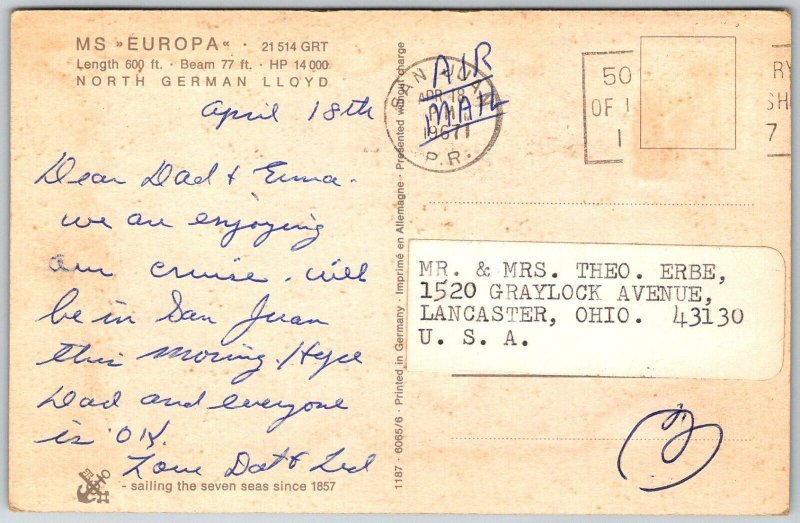 MS »EUROPA« · 21 514 GRT
Length 600 ft. · Beam 77 ft. · HP 14 000
NORTH GERMAN LLOYD
April 18th
Dear Dad & Erma.
we are enjoying
our cruise. will
be in San Juan
this moring. Hope
Dad and everyone
is OK.
Love Dot & Ted
- sailing the seven seas since 1857
1187 · 6065/6 · Printed in Germany · Imprimé en Allemagne · Presented without charge
SAN JUAN
APR 18
PM
1967
P.R.
AIR
MAIL
50
OF
RY
SH
7
MR. & MRS. THEO. ERBE,
1520 GRAYLOCK AVENUE,
LANCASTER, OHIO. 43130
U. S. A.